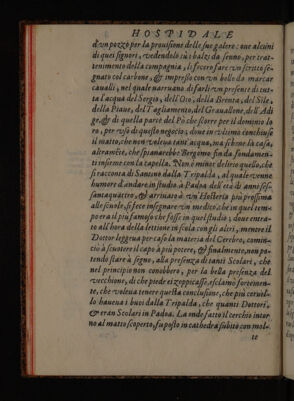 HOSPIDALE
d'vn pozzo per la prouisione delle sue galere: oue alcuni
di quei signori, vedendolo sù i balzi da senno, per trat-
tenimento della compagnia, li fecero fare vn scritto se-
gnato col carbone, & impresso con vn bollo da marcar
caualli, nel quale narrauano di farli vn presente di tut-
ta l'acqua del Sergio, dell'Oio, della Brenta, del Sile,
della Piaue, del Tagliamento, del Grauallone, dell'Adi
ge, & di quella parte del Pò che scorre per il dominio lo
ro, per vso di questo negocio; doue in vltimo conchiuse
il matto, che non voleua tant'acqua, ma sì bene là casa,
altramẽte, che spianarebbe Bergomo fin da fondamen-
ti insieme con la capella. Non è minor de l'altro quello, che
si racconta di Santino dalla Tripalda, al quale venne
humor d'andare in studio à Padoa dell'età di anni ses-
santaquattro, & arriuato à vn'Hosteria più prossima
alle scuole, si fece insegnare vn medico, che in quel tem-
po era il più famoso che fosse in quel studio; doue entra-
to all'hora della lettione in scola con gli altri, mentre il
Dottor leggeua per caso la materia del Cerebro, comin-
ciò à scuotere il capo à più potere, & finalmente, non po-
tendo stare à segno, alla presenza di tanti Scolari, che
nel principio non conobbero, per la bella presenza del
vecchione, di che piede ei zoppicasse, esclamò fortemen-
te, che voleua tenere questa conclusione, che più ceruel-
lo haueua i buoi dalla Tripalda, che quanti Dottori,
& eran Scolari in Padoa. La onde fatto il cerchio intor
no al matto scoperto, fù posto in cathedra subito con mol-
te